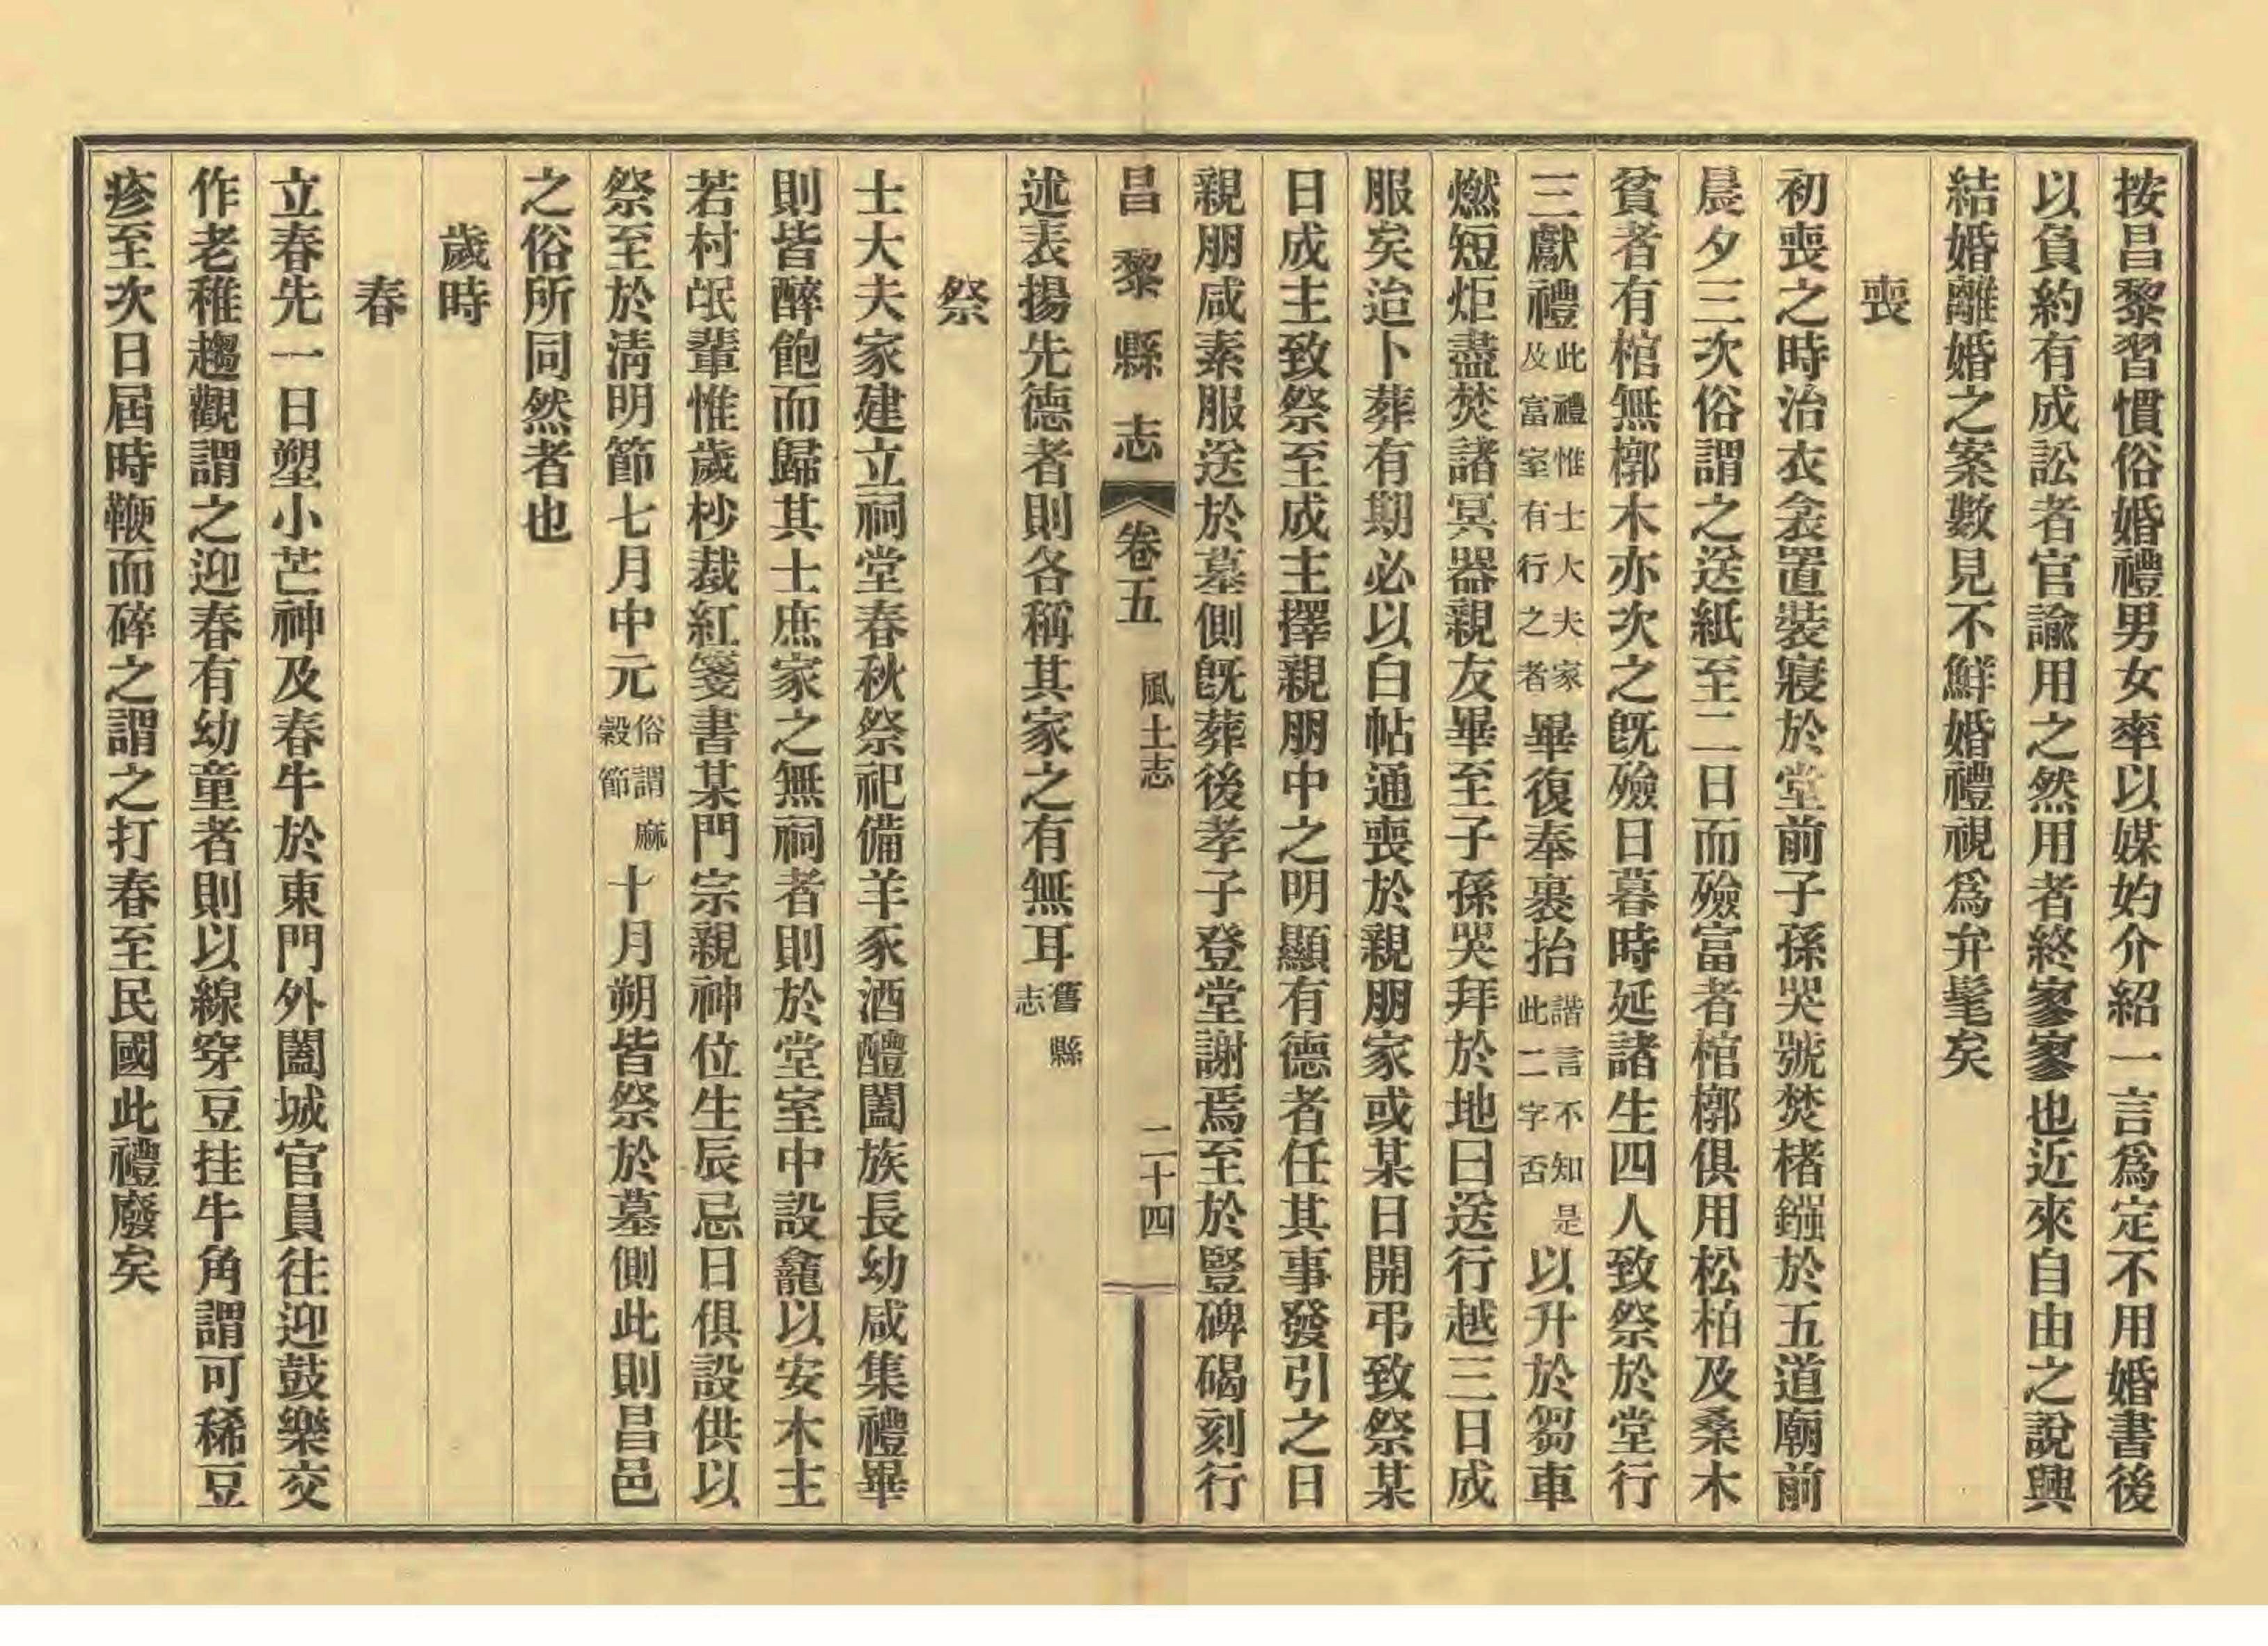 按昌黎習慣俗婚禮男女率以媒妁介紹一言爲定不用婚書後
以負約有成訟者官諭用之然用者終寥寥也近來自由之說興
結婚離婚之案數見不鮮婚禮視爲弁髦矣
喪
初喪之時治衣衾置裝寢於堂前子孫哭號焚楮鏹於五道廟前
晨夕三次俗謂之送紙至二日而殮富者棺槨俱用松柏及桑木
貧者有棺無槨木亦次之既殮日暮時延諸生四人致祭於堂行
三獻禮此禮惟士大夫家及富室有行之者畢復奉裹抬諧言不知是此二字否以升於芻車
燃短炬盡焚諸冥器親友畢至子孫哭拜於地曰送行越三日成
服矣迨卜葬有期必以白帖通喪於親朋家或某日開弔致祭某
日成主致祭至成主擇親朋中之明顯有德者任其事發引之日
親朋咸素服送於墓側既葬後孝子登堂謝焉至於豎碑碣刻行
昌黎縣志 卷五 風土志 二十四
述表揚先德者則各稱其家之有無耳舊縣志
祭
士大夫家建立祠堂春秋祭祀備羊豕酒醴闔族長幼咸集禮畢
則皆醉飽而歸其士庶家之無祠者則於堂室中設龕以安木主
若村氓輩惟歲杪裁紅箋書某門宗親神位生辰忌日俱設供以
祭至於清明節七月中元俗謂麻穀節十月朔皆祭於墓側此則昌邑
之俗所同然者也
歲時
春
立春先一日塑小芒神及春牛於東門外闔城官員往迎鼓樂交
作老稚趨觀謂之迎春有幼童者則以線穿豆挂牛角謂可稀豆
疹至次日屆時鞭而碎之謂之打春至民國此禮廢矣